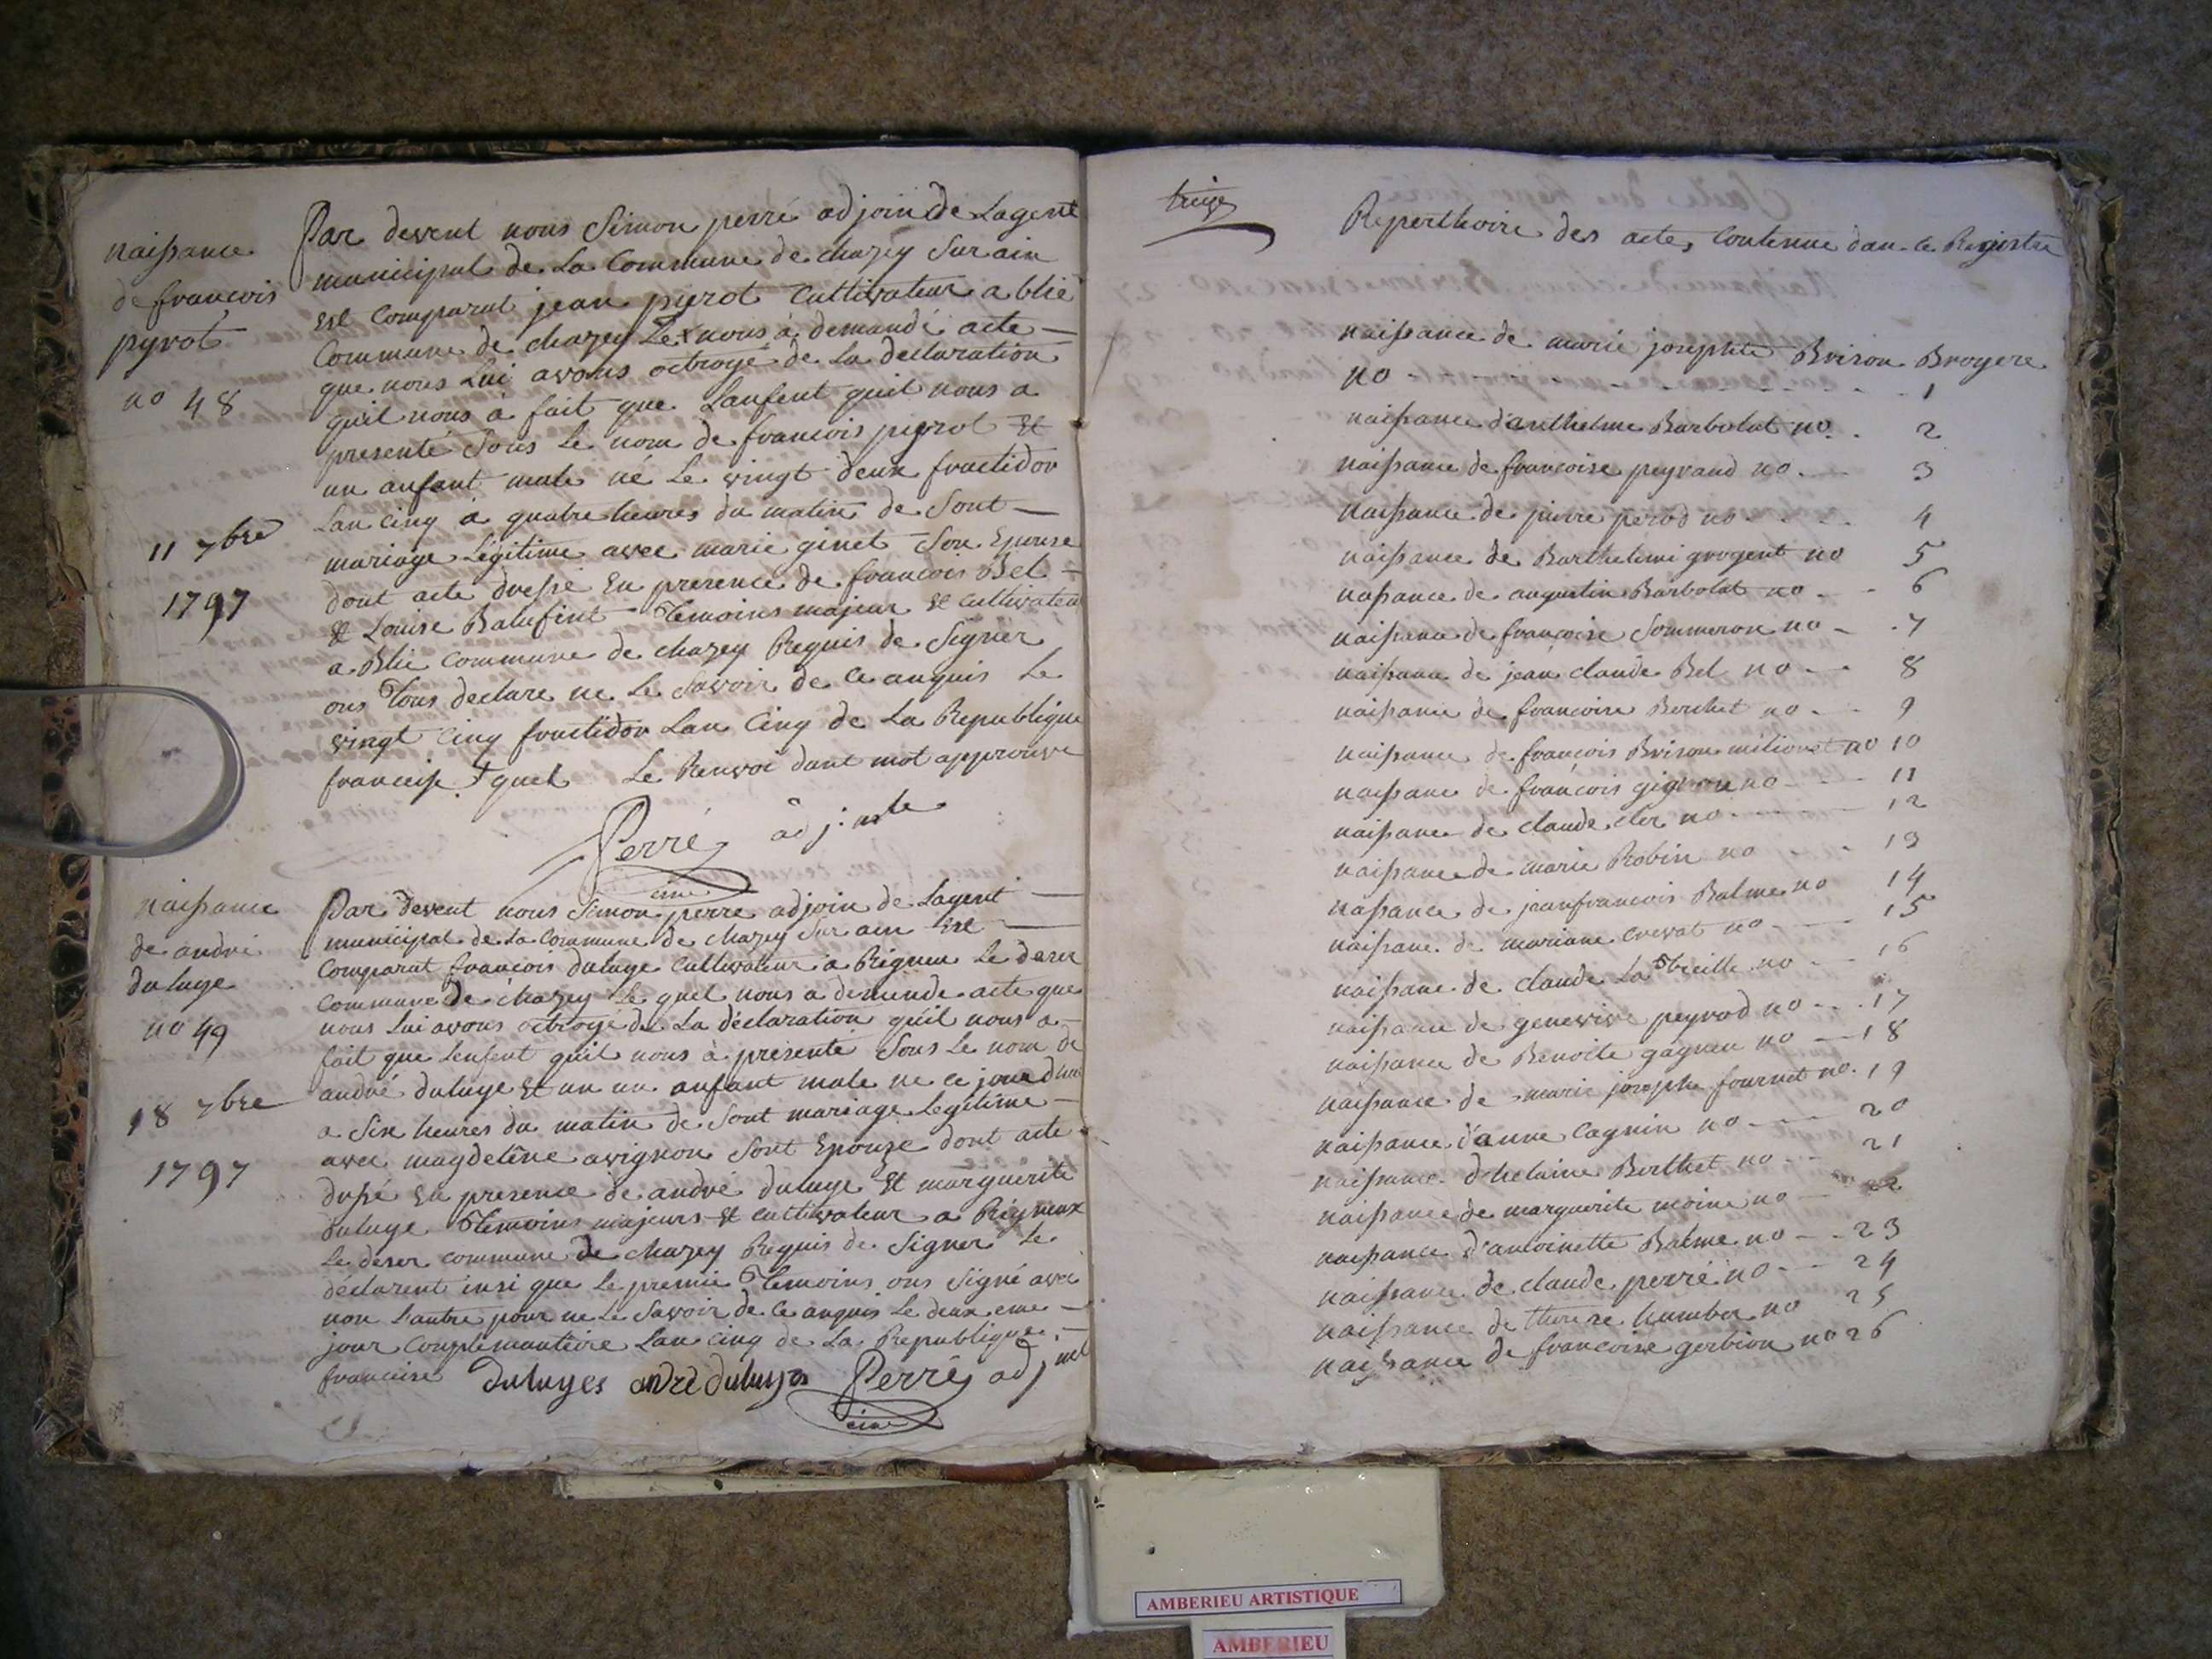 naissance
de francois
pyrot
no 48
11 7bre
1797
Par devent nous Simon perré adjoin de Lagent
municipal de La Commune de chazey Sur ain
Est Comparut jean pyrot Cultivateur a blie
Commune de chazey Le + nous à demandé acte
que nous Lui avons octroyé de La declaration
quil nous à fait que Lanfent quil nous a
presenté Sous Le nom de francois pyrot Et
un anfant male né Le vingt deux fructidor
Lan Cinq à quatre heures du matin de Sont
mariage Légitime avec marie ginet Son Epouse
dont acte dressé En presence de francois Bel
Et Louise Balufint Temoins majeur Et cultivateur
a Blie Commune de chazey Requis de Signer
ons Tous declare ne Le Savoir de Ce anquis Le
vingt Cinq fructidor Lan Cinq de La Republique
franceise + quel Le Renvoi dant mot approuve
Perré adj. nt
ainé
naissance
de andré
duluye
no 49
18 7bre
1797
Par devent nous Simon perre adjoin de Lagent
municipal de La Commune de chazey Sur ain Est
Comparut francois duluye Cultivateur a Rigneu Le deser
Commune de chazey Le quel nous a demende acte que
nous Lui avons octroyé de La déclaration quil nous a
fait que Lenfent quil nous à présente Sous Le nom de
andré duluye Et un un anfant male ne ce jourdhui
a Six heures du matin de Sont mariage Legitime
avec magdeleine avignon Sont Epouze dont acte
dressé En presence de andré duluye Et marguerite
duluye Temoins majeurs Et Cultivateur a Rigneux
Le deser commune de chazey Requis de Signer Le
déclarent insi que Le premie Temoins ons Signé avec
non Lautre pour ne Le Savoir de Ce anquis Le deux eme
jour Complémantaire Lan Cinq de La Republique
franceise duluyes andré duluye Perré adj nt
ainé
treize
Reperthoire des actes Contenue dan ce Registre
naissance de marie josephte Brison Broyere
no 1
naissance d'anthelme Barbolat no. 2
naissance de francoise peyraud no. 3
naissance de pierre perod no 4
naissance de Barthelemi grogent no 5
naissance de augustin Barbolat no 6
naissance de francoise Sommeron no 7
naissance de jean claude Bel no 8
naissance de francoise Berchet no 9
naissance de francois Brison milionet no 10
naissance de francois gignon no 11
naissance de claude cler no 12
naissance de marie Robin no 13
naissance de jeanfrancois Balme no 14
naissance de mariane crevat no 15
naissance de claude La Bieille no 16
naissance de genevive peyrod no 17
naissance de Benoite gagneu no 18
naissance de marie josephe fournet no. 19
naissance d'anne Cagnin no 20
naissance d'helaine Berthet no 21
naissance de marguerite moine no 22
naissance d'antoinette Balme no 23
naissance de claude perré no 24
naissance de therese humber no 25
naissance de francoise gerbion no 26
AMBERIEU ARTISTIQUE
AMBERIEU